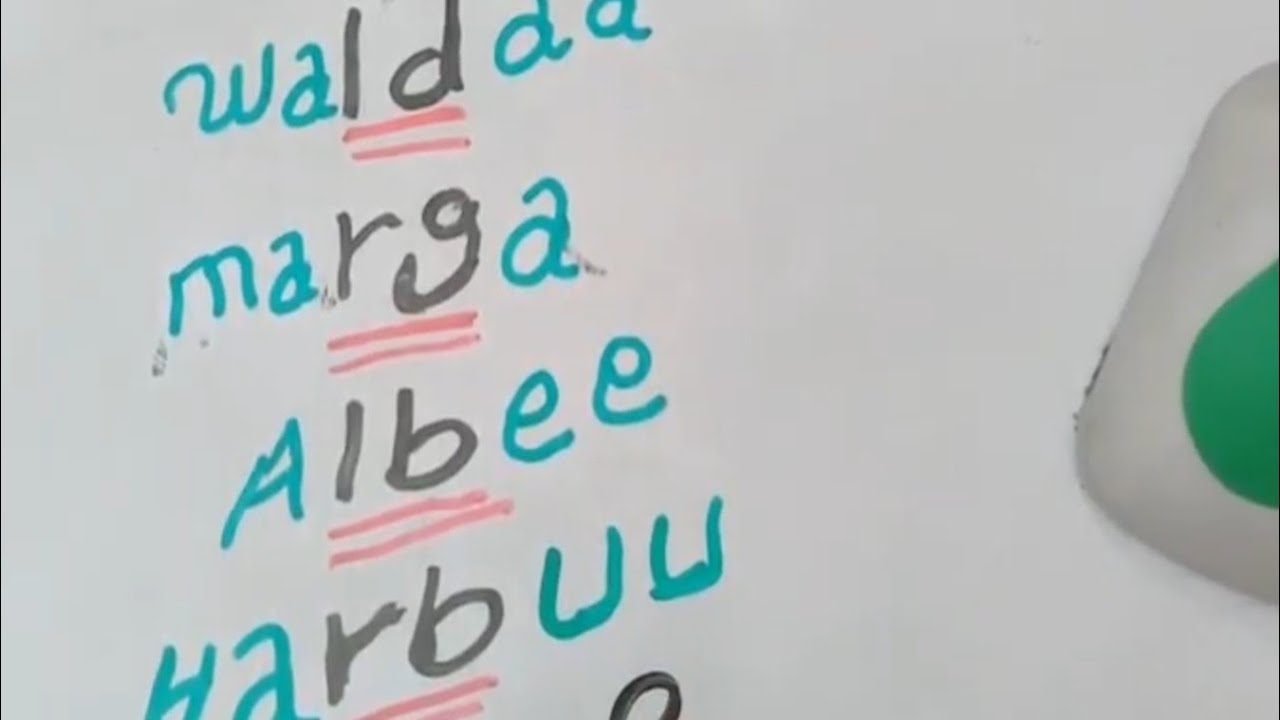 waldaa
marga
Albee
Harbuu